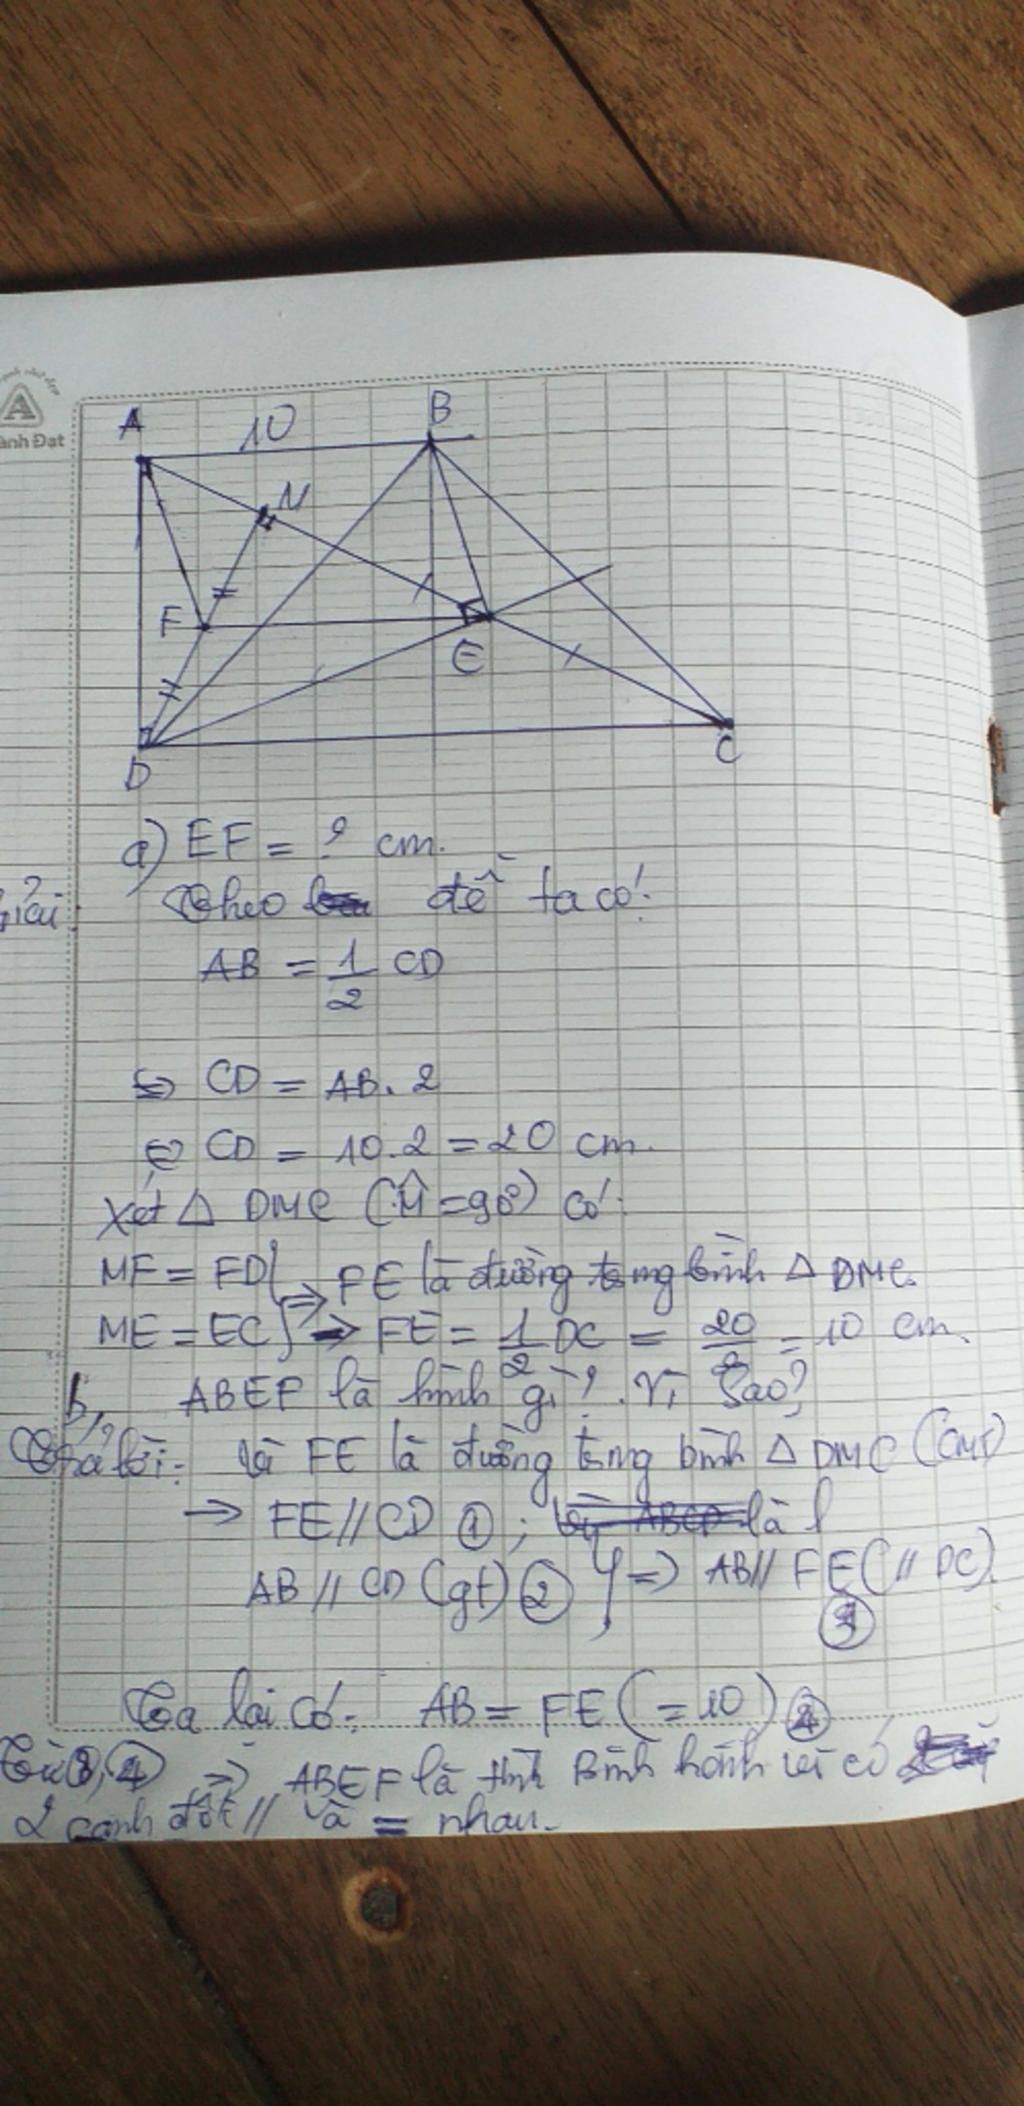 A
ành Đạt
A
10
B
M
F
E
D
C
a) EF = ? cm.
Giải:
Theo đề ta có:
AB = 1/2 CD
⇔ CD = AB.2
⇔ CD = 10.2 = 20 cm.
Xét Δ DMC (M̂ = 90°) có:
MF = FD } ⇒ FE là đường trung bình Δ DMC.
ME = EC } → FE = 1/2 DC = 20/2 = 10 cm.
b, ABEF là hình gì? Vì sao?
Trả lời: Vì FE là đường trung bình Δ DMC (CMT)
→ FE // CD ① ; là
AB // CD (gt) ② } ⇒ AB // FE (// DC). ③
Ta lại có: AB = FE (= 10) ④
Từ ③, ④ ⇒ ABEF là hình Bình hành vì có
2 cạnh đối // và = nhau.